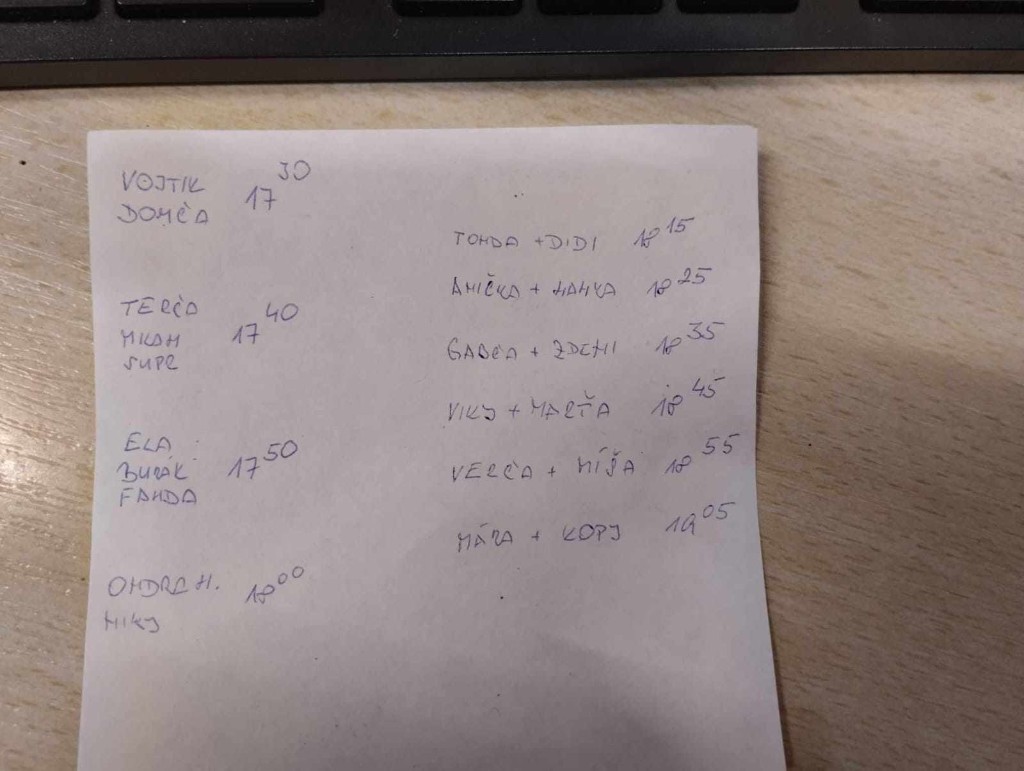 VOJTIK 17 30
DOMČA
TERČA
MKAN 17 40
SUPR
ELA
BUŘÁK 17 50
FANDA
ONDRA H. 18 00
MIKY
TONDA + DIDI 18 15
ANIČKA + HANKA 18 25
GABČA + ZDENI 18 35
VIKY + MARŤA 18 45
VERČA + MÍŠA 18 55
MÁRA + KOPY 19 05